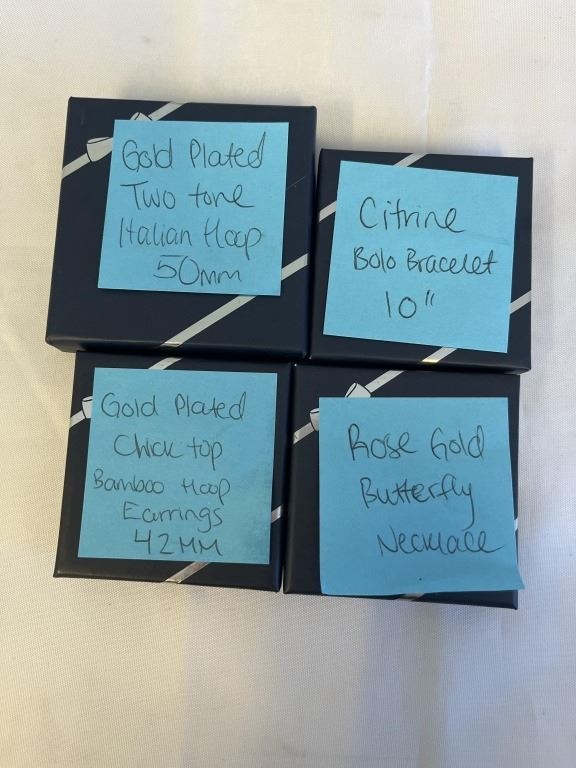 Gold Plated
Two tone
Italian Hoop
50mm
Citrine
Bolo Bracelet
10"
Gold Plated
Chick top
Bamboo Hoop
Earrings
42MM
Rose Gold
Butterfly
Necklace